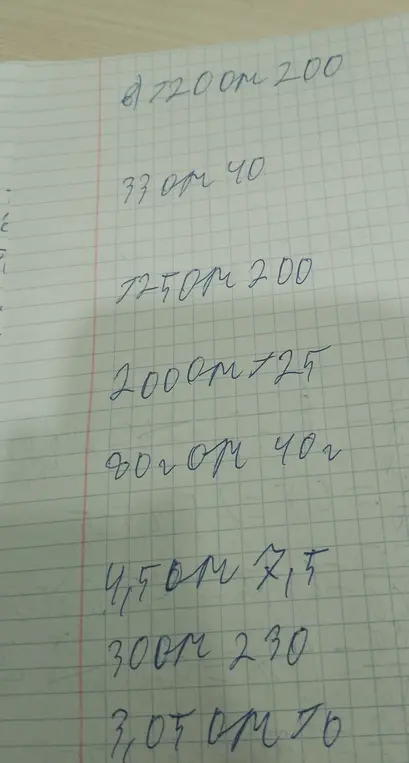 в) 120 от 200
33 от 40
125 от 200
200 от 125
80г от 40г
4,5 от 7,5
30 от 230
3,05 от 10